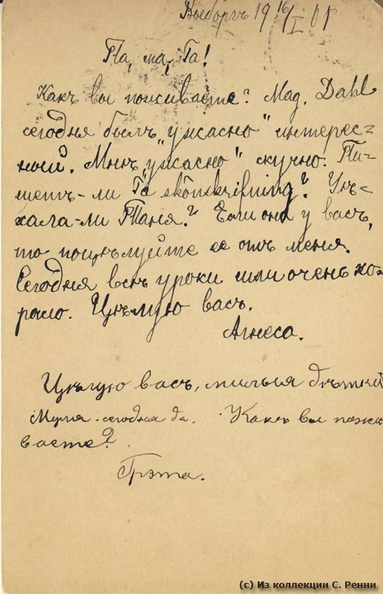 Выборгъ 19 16/I 01
Па, ма, Га!
Какъ вы поживаете? Mad. Dahl
сегодня былъ „ужасно" интерес-
ной. Мнѣ „ужасно" скучно. Пи-
шетъ-ли Га skönskrifning? Уѣ-
хала-ли Таня? Если она у васъ,
то поцѣлуйте ее отъ меня.
Сегодня всѣ уроки шли очень хо-
рошо. Цѣлую васъ.
Агнеса.
Цѣлую васъ, милыя
сегодня да. Какъ вы пожи
ваете?
Грэта.
(c) Из коллекции С. Ренни